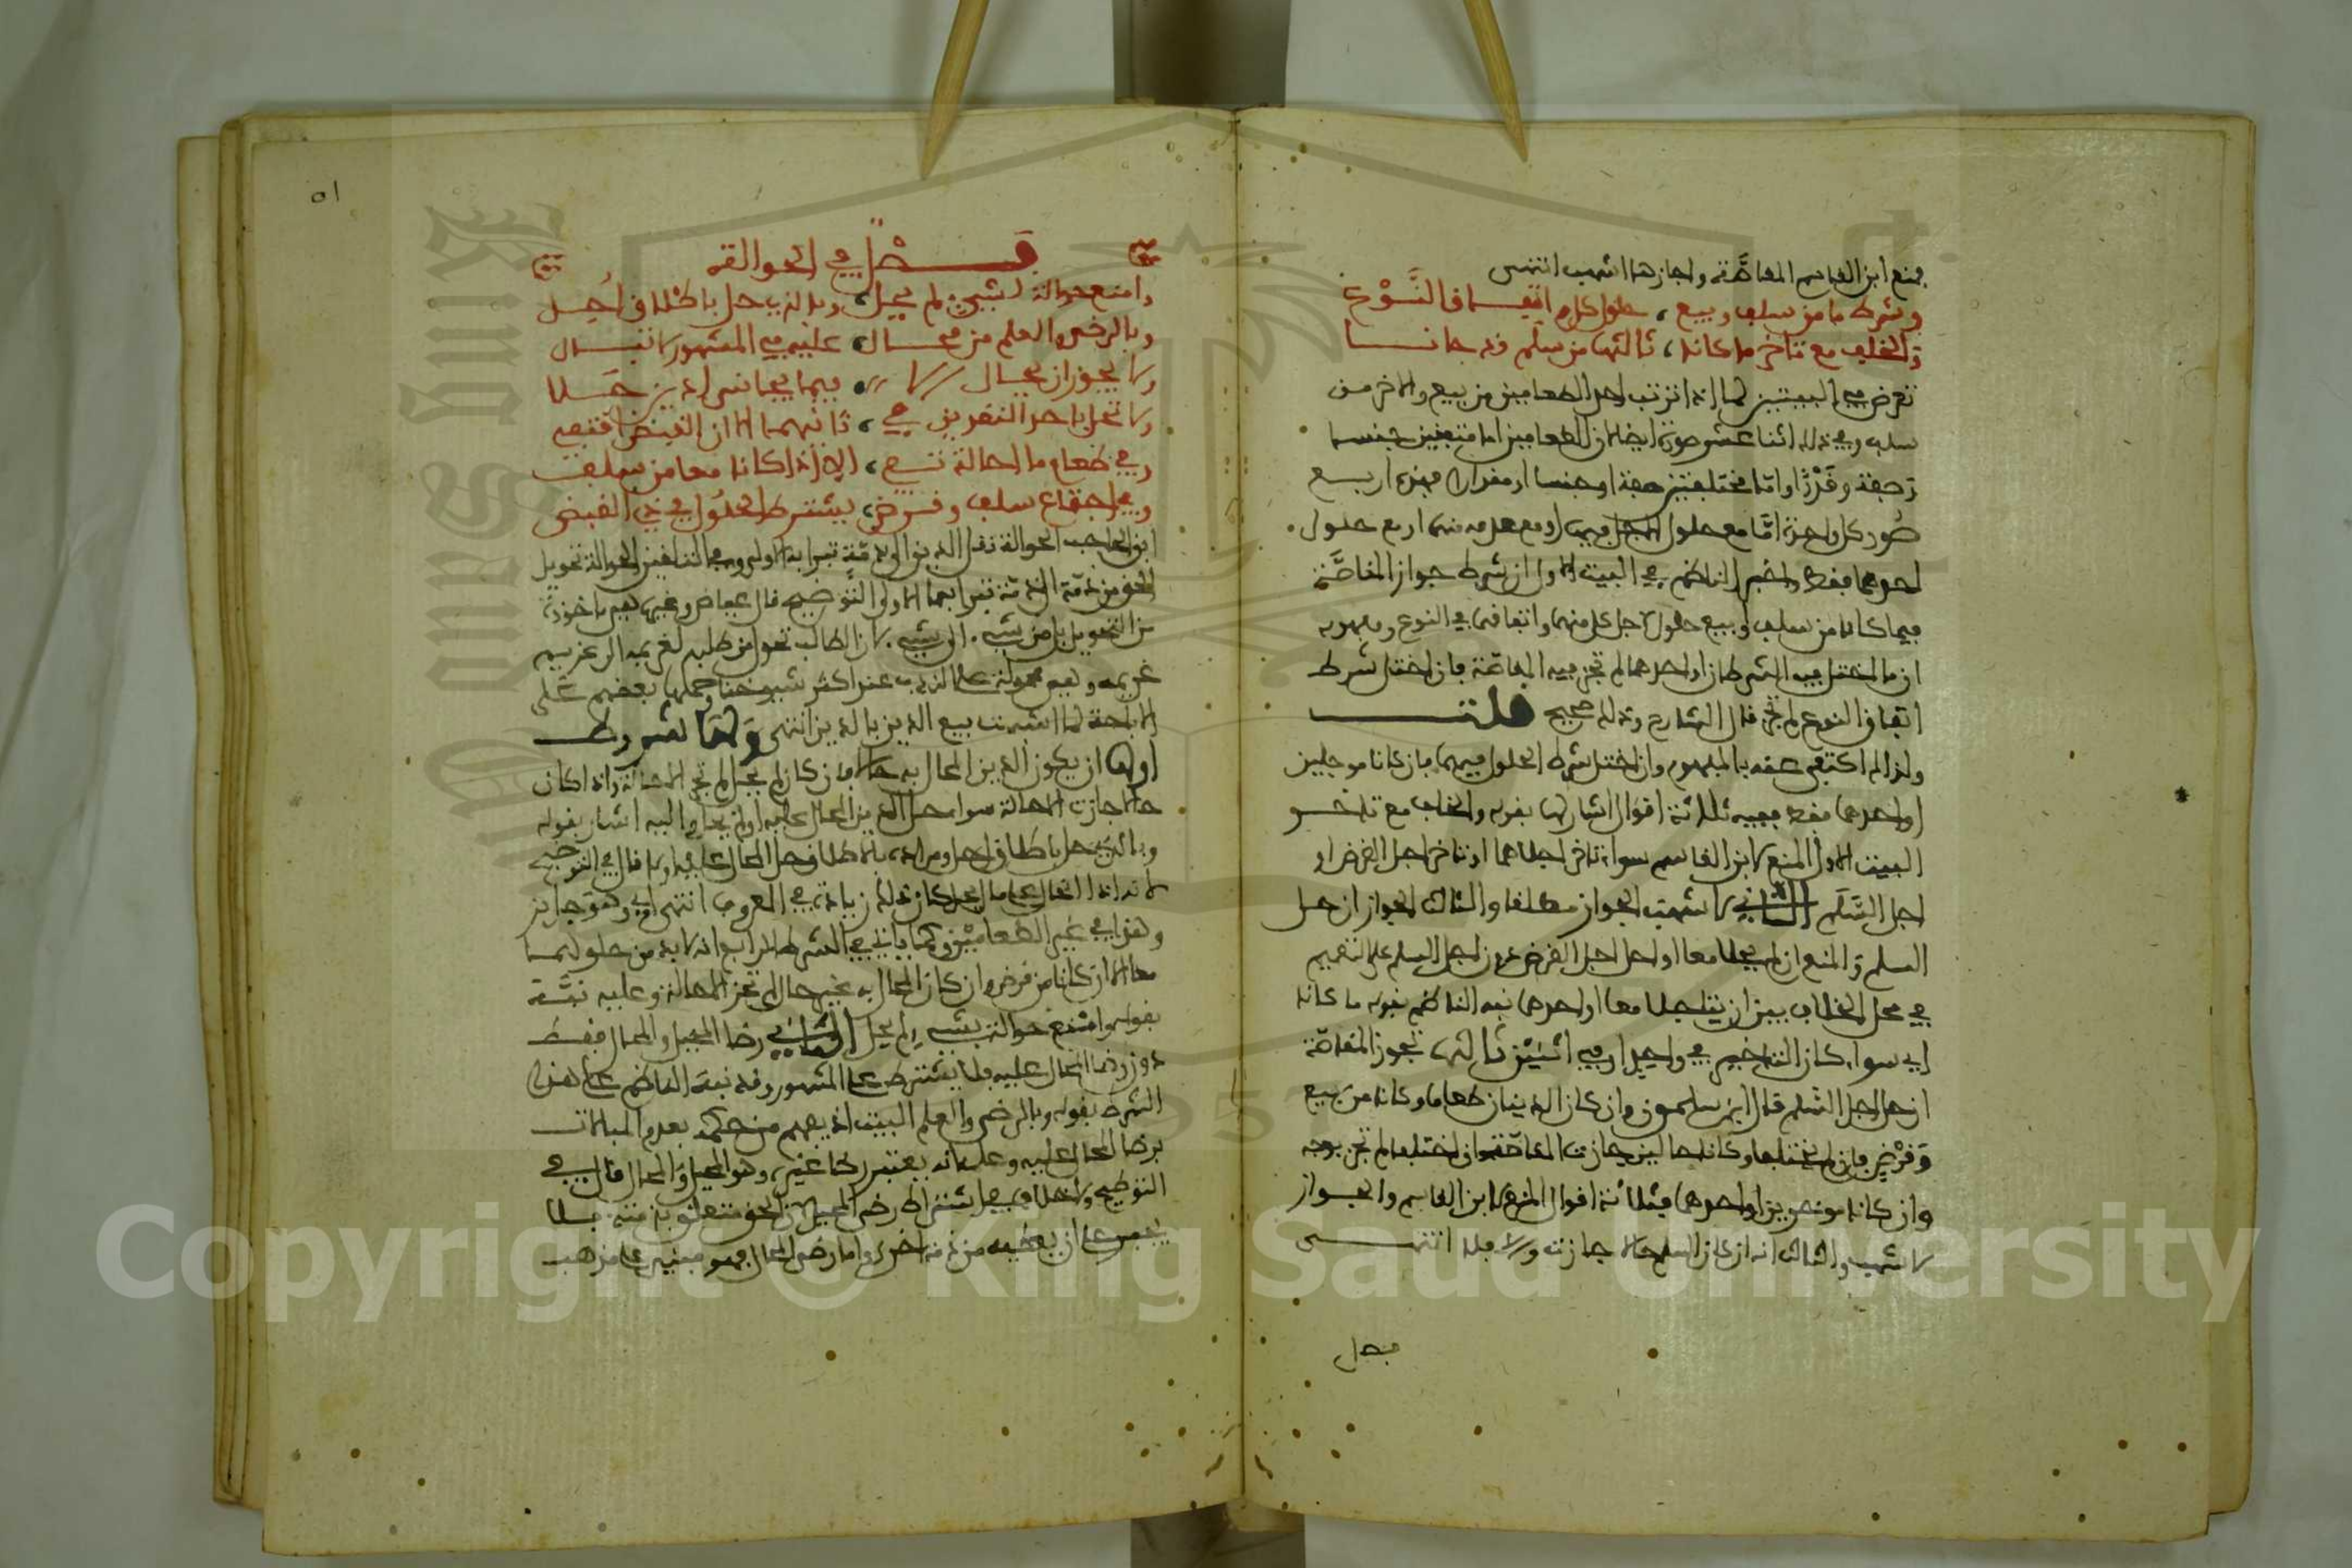 فمنع ابن القاسم المقاصة واجازها اشهب انتهى
وشرط ما من سلف وبيع حلول كل واتفاق النوع
والخلف مع تاخر ما كانا ثالثها من سلم قد حانا
تعرض في البيتين لما اذا ترتب احد الطعامين من بيع والاخر من
سلف وفي ذلك اثنا عشر صورة ايضا لان الطعامين اما متفقين جنسا
وصفة وقدرا واما مختلفين صفة او جنسا او مقدارا فهذه اربع
صور كل واحدة اما مع حلول الاجل فيهما او مع عدمه منهما او مع حلول
احدهما فقط واخبر الناظم في البيت الاول ان شرط جواز المقاصة
فيما كانا من سلف وبيع حلول اجل كل منهما واتفاقهما في النوع ومفهومه
ان ما اختل فيه الشرطان او احدهما لم تجز فيه المقاصة فان اختل شرط
اتفاق النوع لم تجز قال الشارح وذلك صحيح قلت
ولذا لم اكتفى عنه بالمفهوم وان اختل شرط الحلول فيهما بان كانا موجلين
او احدهما فقط ففيه ثلاثة اقوال اشار لها بقوله والخلف مع تاخر
البيت الاول المنع لابن القاسم سواء تاخر اجلاهما او تاخر اجل القرض او
اجل السلم الثاني لاشهب الجواز مطلقا والثالث الجواز ان حل
السلم والمنع ان لم يحلا معا او حل اجل القرض دون اجل السلم على التعميم
في محل الخلاف بين ان يتاجلا معا او احدهما نبه الناظم بقوله ما كانا
اي سواء كان التاخير في واحد او في اثنين ثالثها تجوز المقاصة
ان حل اجل السلم قال ابن سلمون وان كان الدينان طعاما وكانا من بيع
وقرض فان لم يختلفا وكانا حالين جازت المقاصة وان اختلفا لم تجز بوجه
وان كانا موخرين او احدهما فثلاثة اقوال المنع لابن القاسم والجواز
لاشهب والثالث انه ان كان السلم حالا جازت والا فلا انتهى
فصل
٥١
فصل في الحوالة
وامنع حوالة بشيء لم يحل وبالذي حل بالاطلاق احل
وبالرضى والعلم من محال عليه في المشهور لا تبال
ولا يجوز ان يحال الا فيما يجانس لدين حلا
ولا تحل باحد النقدين في ثانيهما الا ان القبض اقتفي
وفي طعام ما احالة تفي الا اذا كانا معا من سلف
وفي اجتماع سلف وقرض يشترط الحلول في ذي القبض
ابن الحاجب الحوالة نقل الدين الى ذمة تبرا بها الاولى وفي التلقين الحوالة تحويل
الحق من ذمة الى ذمة تبرا بها الاولى التوضيح قال عياض وغيره هي ماخوذة
من التحويل من شيء الى شيء لان الطالب تحول من طلبه لغريمه الى غريم
غريمه وهي محمولة على الندب عند اكثر شيوخنا وحملها بعضهم على
الاباحة لما اشبهت بيع الدين بالدين انتهى ولها شروط
اولها ان يكون الدين المحال به حالا فان كان لم يحل لم تجز الاحالة واذا كان
حالا جازت الاحالة سواء حل الدين المحال عليه او لم يحل واليه اشار بقوله
وبالذي حل بالاطلاق احل ومراده بالاطلاق حل المحال عليه ام لا قال في التوضيح
لانه اذا احال على ما لم يحل كان ذلك زيادة في المعروف انتهى اي وهو جائز
وهذا في غير الطعامين وكما ياتي في الشرط الرابع انه لا بد من حلولهما
معا الا ان كانا من قرض وان كان المحال به غير حال لم تجز الاحالة وعليه نبه
بقوله وامنع حوالة بشيء لم يحل الثاني رضا المحيل والمحال فقط
دون رضا المحال عليه فلا يشترط على المشهور وقد نبه الناظم على هذا
الشرط بقوله وبالرضى والعلم البيت اذ يفهم من حكمه بعدم المبالات
برضا المحال عليه وعلمه انه يعتبر رضا غيره وهو المحيل والمحال قال في
التوضيح ولا خلاف في اشتراط رضى المحيل لان الحق متعلق بذمته فلا
يجبر على ان يعطيه من ذمة اخرى واما رضى المحال فهو مبني على مذهب
Copyright © King Saud University